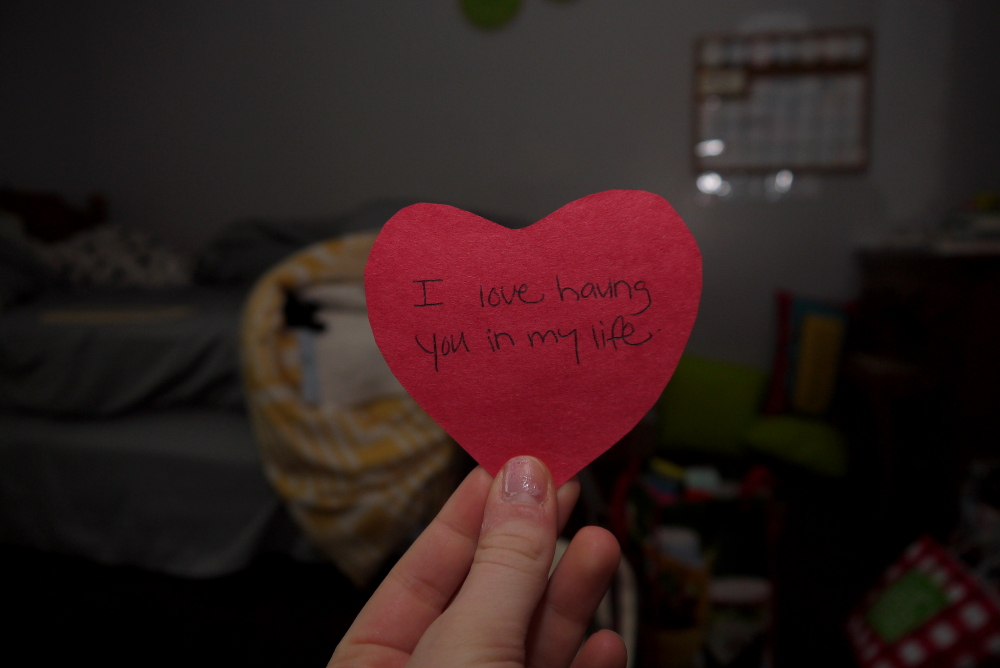 I love having
you in my life.